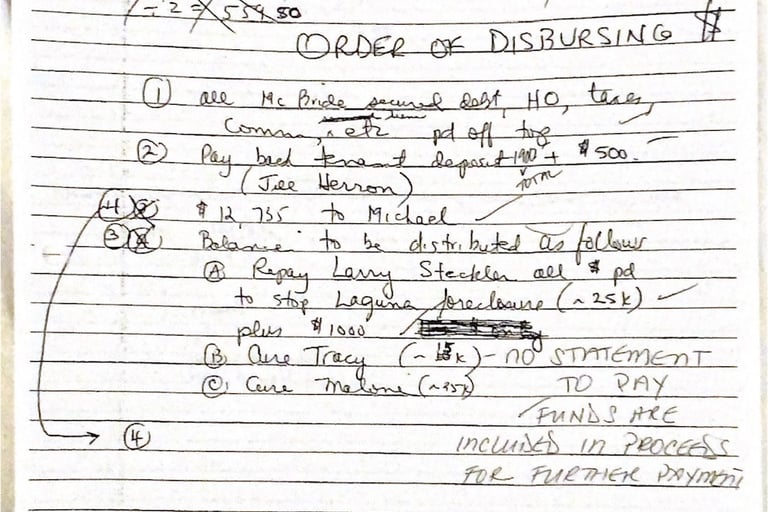 ÷ 2 = 55480
ORDER OF DISBURSING $
① all McBride secured debt, HO, taxes,
Comm, etc pd off top
② Pay back tenant deposit 1900 + $500.
(Jill Herron) TOTAL
④ $12,735 to Michael
③ Balance to be distributed as follows
Ⓐ Repay Larry Steckler all $ pd
to stop Laguna foreclosure (~25k)
plus $1000
Ⓑ Cure Tracy (~15k) - NO STATEMENT
Ⓒ Cure Malone (~25k) TO PAY
FUNDS ARE
④ INCLUDED IN PROCEEDS
FOR FURTHER PAYMENT